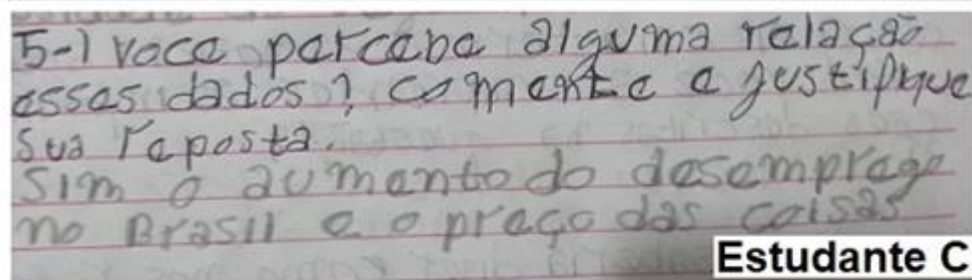 5-) voce percebe alguma relação
esses dados? comente e justifique
sua reposta.
Sim o aumento do desemprego
no Brasil e o preço das coisas
Estudante C